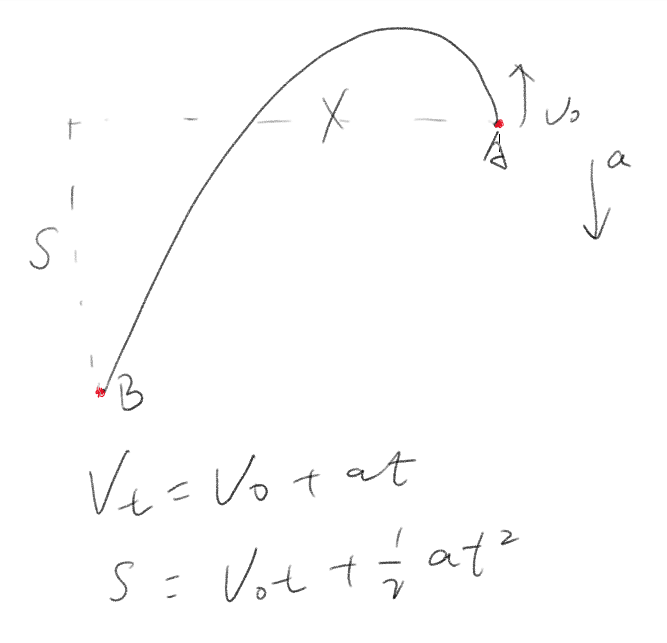 X
V₀
A
a
S
B
Vₜ = V₀ + at
S = V₀t + ½ at²